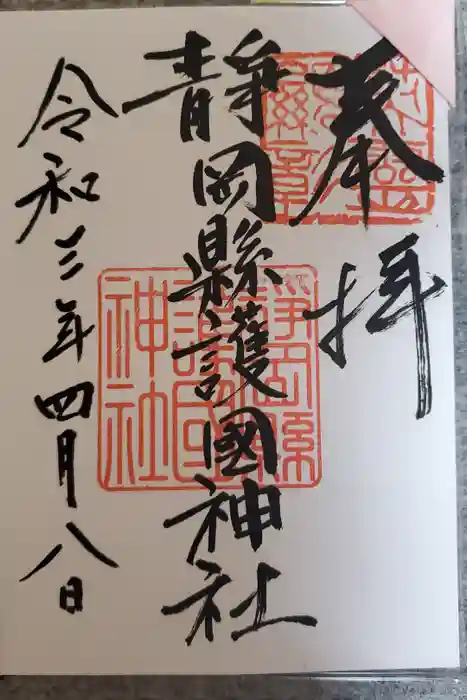 奉拝
静岡縣護國神社
令和三年四月八日
静岡縣
護國
神社